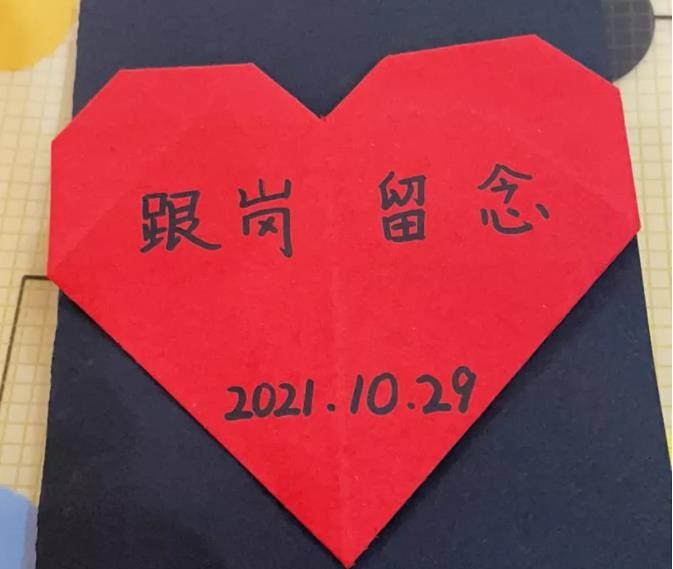 跟岗 留念
2021.10.29